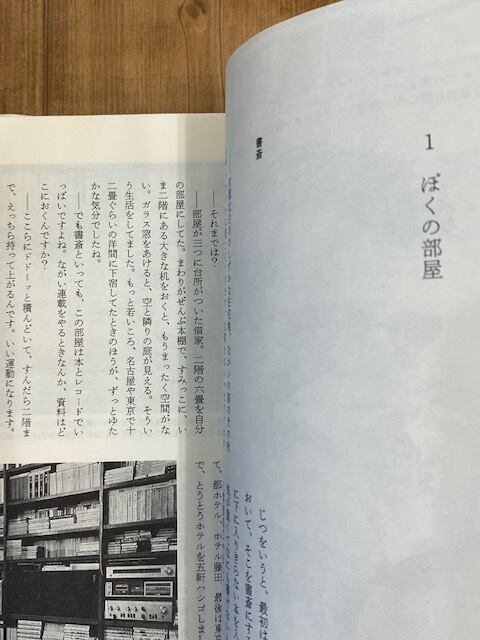 1 ぼくの部屋
書斎
じつをいうと、最初は
おいて、そこを書斎にす
に下に入りきらない本を入
――それまでは？
――部屋が三つに台所がついた借家。二階の六畳を自分
の部屋にしてた。まわりがぜんぶ本棚で、すみっこに、い
ま二階にある大きな机をおくと、もうまったく空間がな
い。ガラス窓をあけると、空と隣りの庭が見える。そうい
う生活をしてました。もっと若いころ、名古屋や東京で十
二畳ぐらいの洋間に下宿してたときのほうが、ずっとゆた
かな気分でしたね。
――でも書斎といっても、この部屋は本とレコードでい
っぱいですよね。ながい連載をやるときなんか、資料はど
こにおくんですか？
――ここらにドドーッと積んどいて、すんだら二階ま
で、えっちら持って上がるんです。いい運動になります。
て、都ホテル、ホテル藤田、最後は東急
で、とうとうホテルを五軒ハシゴしまし